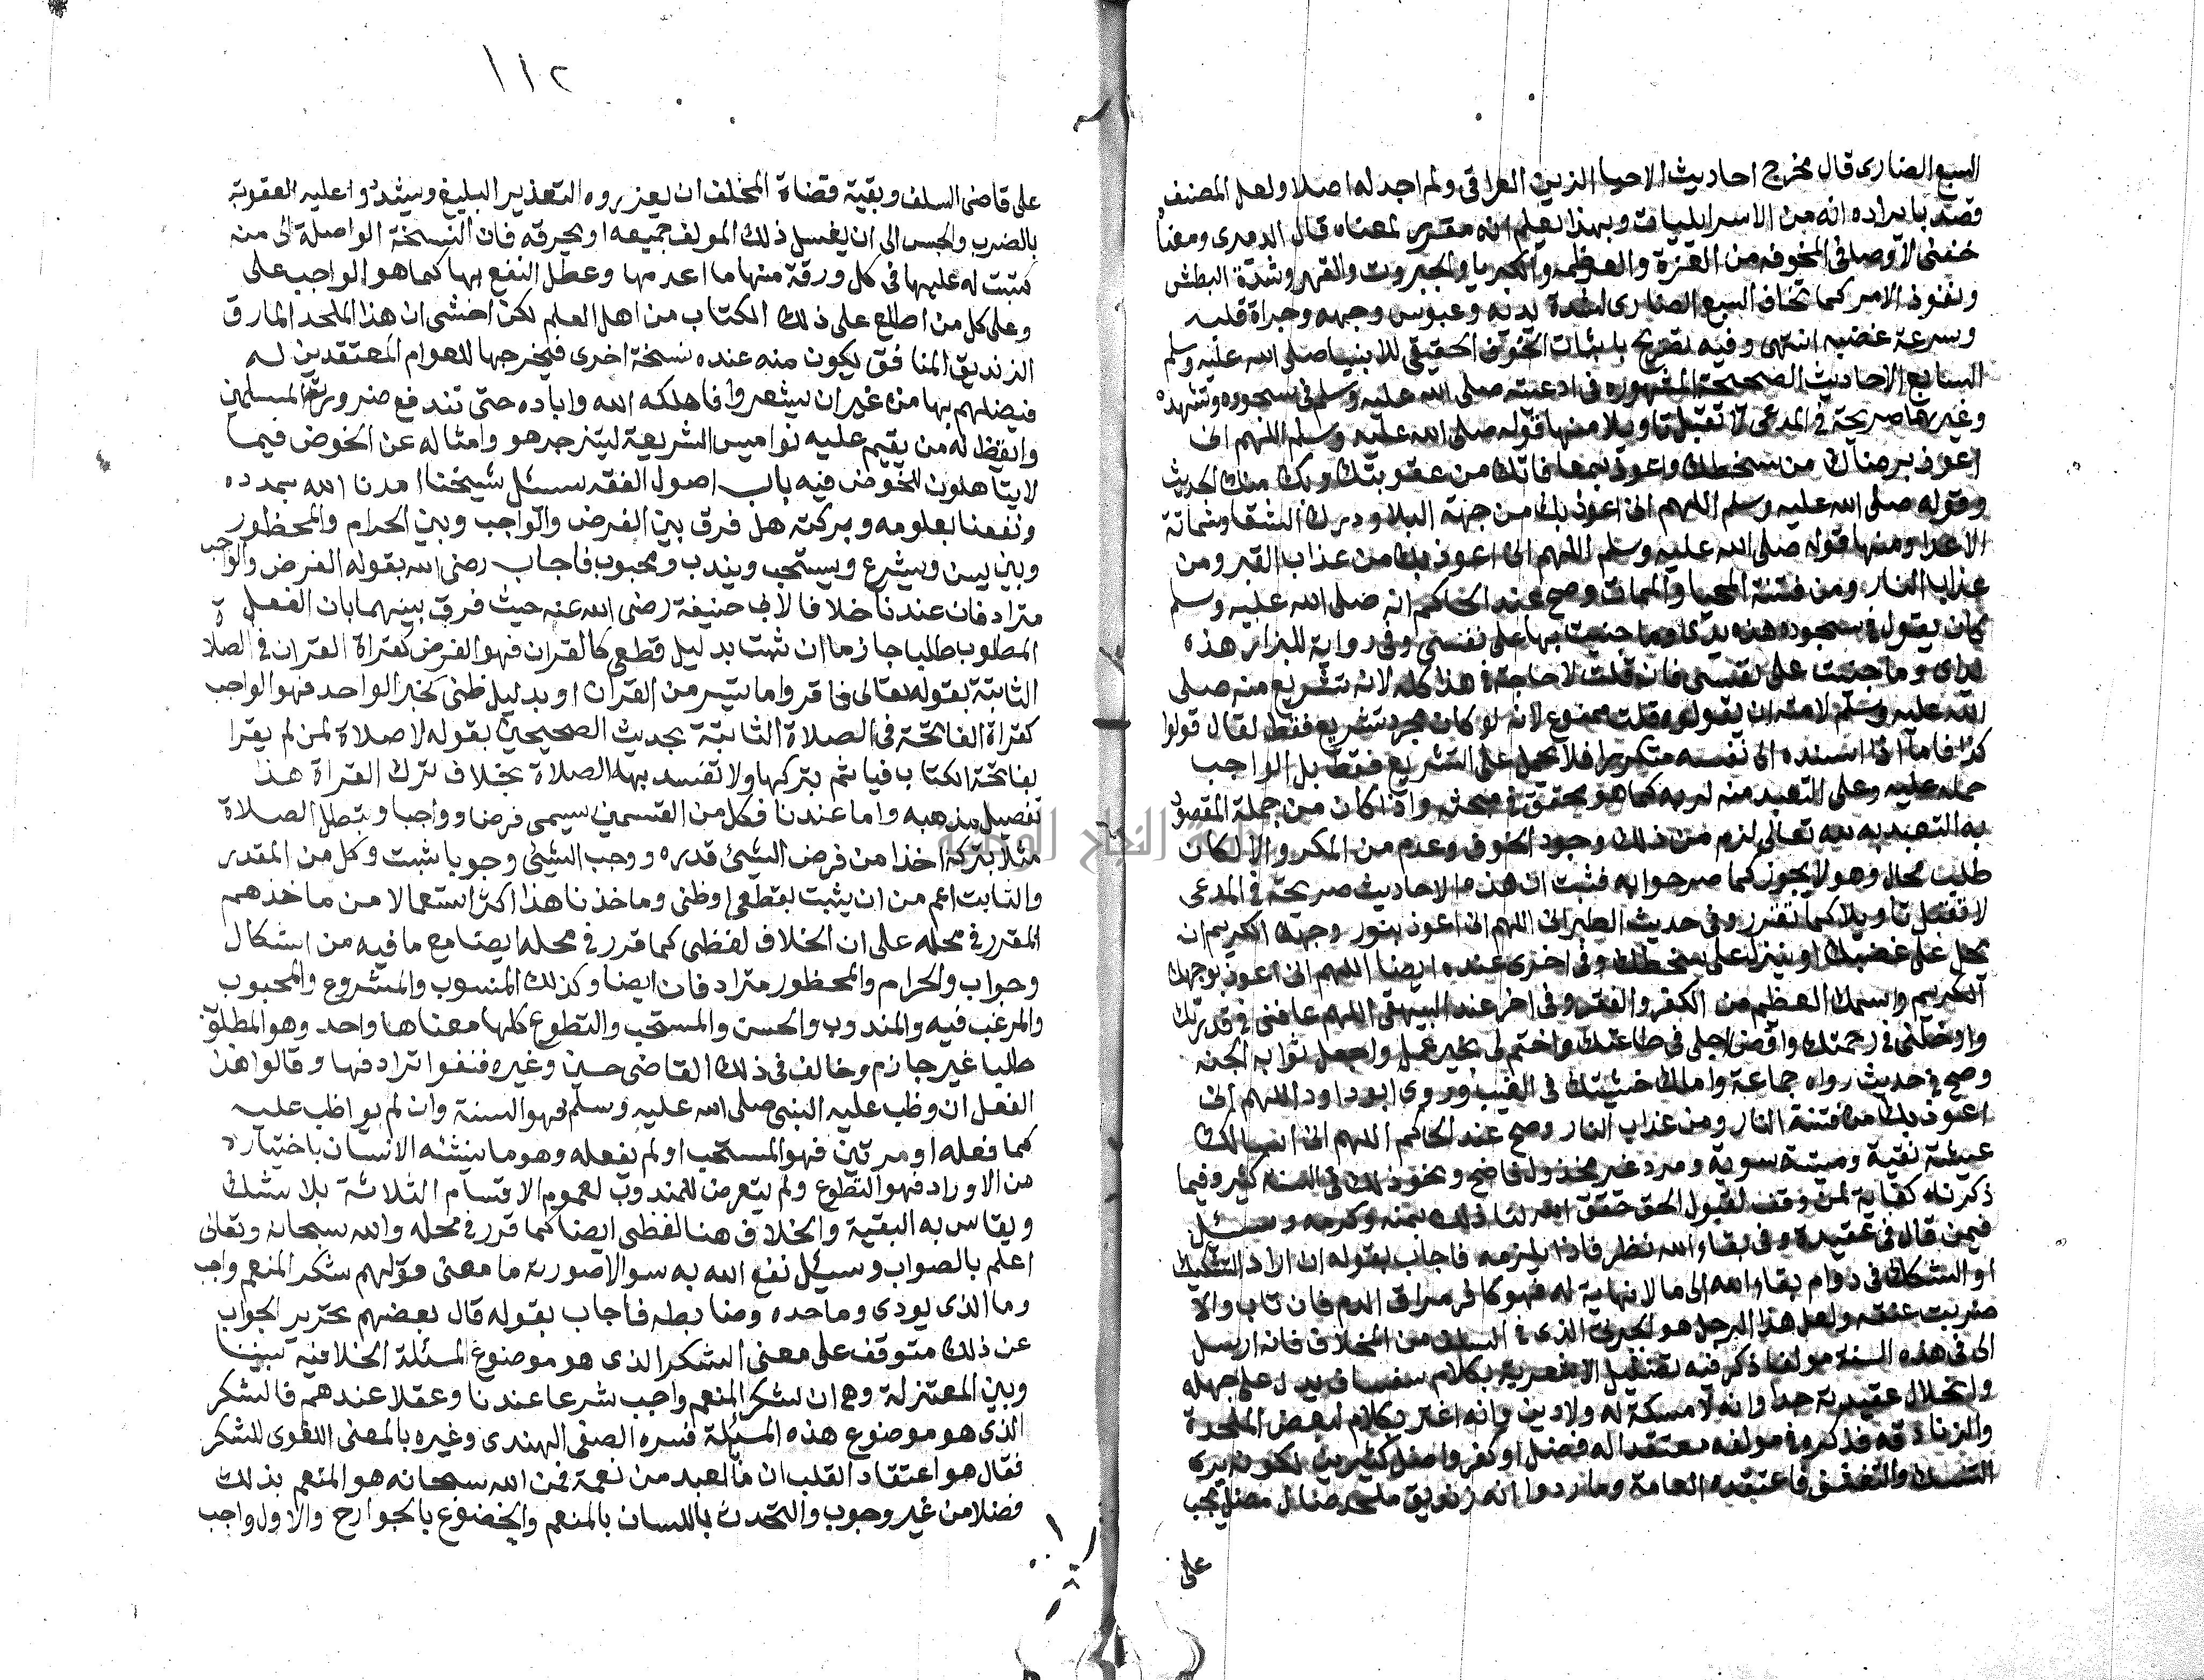 السبع الضارى قال مخرج احاديث الاحيا الزين العراقى ولم اجد له اصلا ولعل المصنف
قصد بايراده انه من الاسرايليات وبهذا يعلم انه مقرر لمعناه قال الدميرى ومعناه
خفنى لاوصافى المخوفه من العزة والعظمه والكبريا والجبروت والقهر وشدة البطش
ونفوذ الامر كما تخاف السبع الضارى لشدة يديه وعبوس وجهه وجراة قلبه
وسرعة غضبه انتهى وفيه تصريح باثبات الخوف الحقيقى للانبيا صلى الله عليه وسلم
السابع الاحاديث الصحيحة المشهوره فى ادعيته صلى الله عليه وسلم فى سجوده وتشهده
وغيرهما صريحة فى المدعى لا تقبل تاويلا منها قوله صلى الله عليه وسلم اللهم انى
اعوذ برضاك من سخطك واعوذ بمعافاتك من عقوبتك وبك منك الحديث
وقوله صلى الله عليه وسلم اللهم انى اعوذ بك من جهد البلا ودرك الشقا وشماتة
الاعدا ومنها قوله صلى الله عليه وسلم اللهم انى اعوذ بك من عذاب القبر ومن
عذاب النار ومن فتنة المحيا والممات وصح عند الحاكم انه صلى الله عليه وسلم
كان يقول فى سجوده هذه يدى وما جنيت بها على نفسى وفى رواية للبزار هذه
يداى وما جنيت على نفسى فان قلت لا حاجة فى هذا كله لانه تشريع منه صلى
الله عليه وسلم لامته ان يقولوه قلت ممنوع لانه لو كان مجرد تشريع فقط لقال قولوا
كذا فاما اذا اسنده الى نفسه متكررا فلا يحمل على التشريع فقط بل الواجب
حمله عليه وعلى التعبد منه لربه كما هو محقق فى مبحثه واذا كان من جملة المقصود
به التعبد به لله تعالى لزم من ذلك وجود الخوف وعدم من المكر والا لكان
طلب محال وهو لا يجوز كما صرحوا به فثبت ان هذه الاحاديث صريحة فى المدعى
لا تقبل تاويلا كما تقرر وفى حديث الطبرانى اللهم انى اعوذ بنور وجهك الكريم ان
يحل على غضبك او ينزل على سخطك وفى اخرى عنده ايضا اللهم انى اعوذ بوجهك
الكريم واسمك العظيم من الكفر والفقر وفى اخر عند البيهقى اللهم عافنى فى قدرتك
وادخلنى فى رحمتك واقض اجلى فى طاعتك واختم لى بخير عمل واجعل ثوابه الجنه
وصح فى حديث رواه جماعة واسالك خشيتك فى الغيب وروى ابو داود اللهم انى
اعوذ بك من فتنة النار ومن عذاب النار وصح عند الحاكم اللهم انى اسالك
عيشة نقية وميتة سوية ومرد غير مخذول فاضح ونحو ذلك فى السنه كثير وفيما
ذكرناه كفاية لمن وقف لقبول الحق حقق الله لنا ذلك بمنه وكرمه وسئل
فيمن قال فى عقيدة وفى بقاء الله نظر فاذا يلزمه فاجاب بقوله ان اراد التشكيك
او الشك فى دوام بقاء الله الى ما لا نهاية له فهو كافر مراق الدم فان تاب والا
ضربت عنقه ولعل هذا الرجل هو الذى فى السلف من المخلاف فانه ارسل
الى فى هذه السنة مولفا ذكر فيه تضليل الاشعرية بكلام سفساف يدل على جهله
وانحلال عقيدته جدا وانه لا مسكة له ولا دين وانه اغتر بكلام لبعض الملحدة
والزنادقه فذكره فى مولفه معتقدا له فضل او كفر واضل كثيرين لكونه يرى
التنسك والتقشف فاعتقده العامة وما دروا انه زنديق ملحد ضال مضل يجب
على
١١٢
على قاضى السلف وبقية قضاة المخلف ان يعزروه التعذير البليغ ويشددوا عليه العقوبة
بالضرب والحبس الى ان يغسل ذلك المولف جميعه او يحرقه فان النسخة الواصلة الى منه
كتبت له عليها فى كل ورقة منها ما اعدمها وعطل النفع بها كما هو الواجب على
وعلى كل من اطلع على ذلك الكتاب من اهل العلم لكن اخشى ان هذا الملحد المارق
الزنديق المنافق يكون منه عنده نسخة اخرى فيخرجها للعوام المعتقدين له
فيضلهم بها من غير ان يشعروا فاهلكه الله واباده حتى تندفع ضرورته المسلمين
وايقظ له من يقيم عليه نواميس الشريعة لينزجر هو وامثاله عن الخوض فيما
لا يتاهلون للخوض فيه باب اصول الفقه سئل شيخنا امدنا الله بمدده
ونفعنا بعلومه وبركته هل فرق بين الفرض والواجب وبين الحرام والمحظور
وبين يسن ويشرع ويستحب ويندب ومحبوب فاجاب رضى الله بقوله الفرض والواجب
مترادفان عندنا خلافا لابى حنيفة رضى الله عنه حيث فرق بينهما بان الفعل
المطلوب طلبا جازما ان ثبت بدليل قطعى كالقران فهو الفرض كقراة القران فى الصلاة
الثابتة بقوله تعالى فاقروا ما تيسر من القران او بدليل ظنى كخبر الواحد فهو الواجب
كقراة الفاتحة فى الصلاة الثابتة بحديث الصحيحين بقوله لا صلاة لمن لم يقرا
بفاتحة الكتاب فياثم بتركها ولا تفسد به الصلاة بخلاف ترك القراة هذا
تفصيل مذهبه واما عندنا فكل من القسمين سيمى فرضا وواجبا وتبطل الصلاة
مثلا بتركه اخذا من فرض الشيئ قدره ووجب الشيئ وجوبا ثبت وكل من المقدر
والثابت اعم من ان يثبت بقطعى اوظنى وماخذنا هذا اكثر استعمالا من ماخذهم
المقرر فى محله على ان الخلاف لفظى كما قرر فى محله ايضا مع ما فيه من اشكال
وجواب والحرام والمحظور مترادفان ايضا وكذلك المنسوب والمشروع والمحبوب
والمرغب فيه والمندوب والحسن والمستحب والتطوع كلها معناها واحد وهو المطلوب
طلبا غير جازم وخالف فى ذلك القاضى حسين وغيره فنفوا ترادفها وقالوا هذا
الفعل ان وظب عليه النبى صلى الله عليه وسلم فهو السنة وان لم يواظب عليه
كما فعله او مرتين فهو المستحب او لم يفعله وهو ما ينشئه الانسان باختياره
من الاوراد فهو التطوع ولم يتعرض للمندوب لعموم الاقسام الثلاثة بلا شك
ويقاس به البقية والخلاف هنا لفظى ايضا كما قرر فى محله والله سبحانه وتعالى
اعلم بالصواب وسئيل نفع الله به سوالا صورته ما معنى قولهم شكر المنعم واجب
وما الذى يودى وما حده وضابطه فاجاب بقوله قال بعضهم تحرير الجواب
عن ذلك متوقف على معنى الشكر الذى هو موضوع المسئلة الخلافية بيننا
وبين المعتزلة وهى ان شكر المنعم واجب شرعا عندنا وعقلا عندهم فالشكر
الذى هو موضوع هذه المسئلة فسره الصفى الهندى وغيره بالمعنى اللغوى للشكر
فقال هو اعتقاد القلب ان ما بالعبد من نعمة فمن الله سبحانه هو المنعم بذلك
فضلا من غير وجوب والتحدث باللسان بالمنعم والخضوع بالجوارح والاول واجب